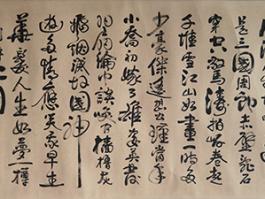 是三國周郎赤壁亂石
穿空驚濤拍岸卷起
千堆雪江山如畫一時多
少豪傑遙想公瑾當年
小喬初嫁了雄姿英發
羽扇綸巾談笑間檣櫓灰
飛烟滅故國神
遊多情應笑我早生
華髮人生如夢一樽